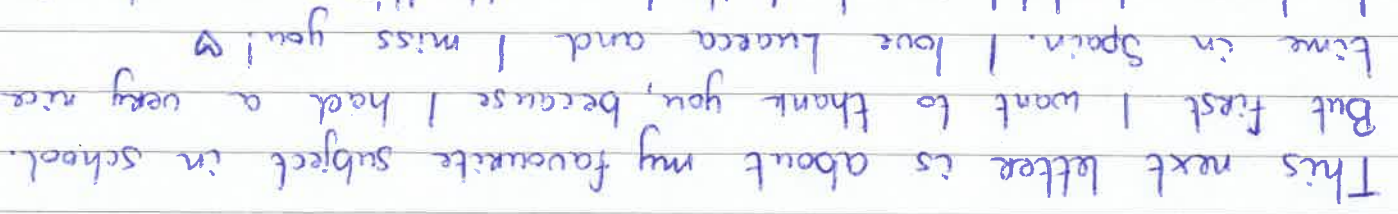 This next letter is about my favourite subject in school.
But first I want to thank you, because I had a very nice
time in Spain. I love Luarca and I miss you! ♡